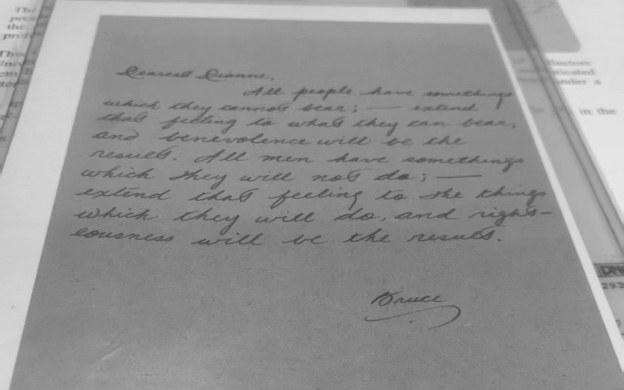 Dearest Dianne,
All people have somethings
which they cannot bear; — extend
that feeling to what they can bear,
and benevolence will be the
results. All men have somethings
which they will not do; —
extend that feeling to the things
which they will do, and right-
eousness will be the results.
Bruce
in the